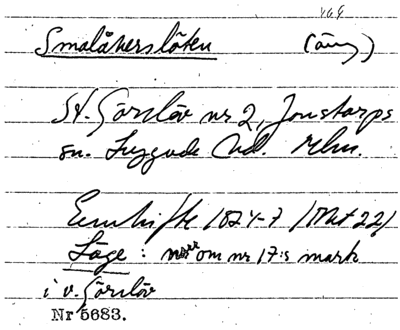 Smalåkerslöken (äng)
St. Görslöv nr 2, Jonstorps
sn. Luggude hd. Mlm.
Enskifte 1824-7 (Akt 22)
Läge: norr om nr 17:s mark
i v. Görslöv
Nr 5683.